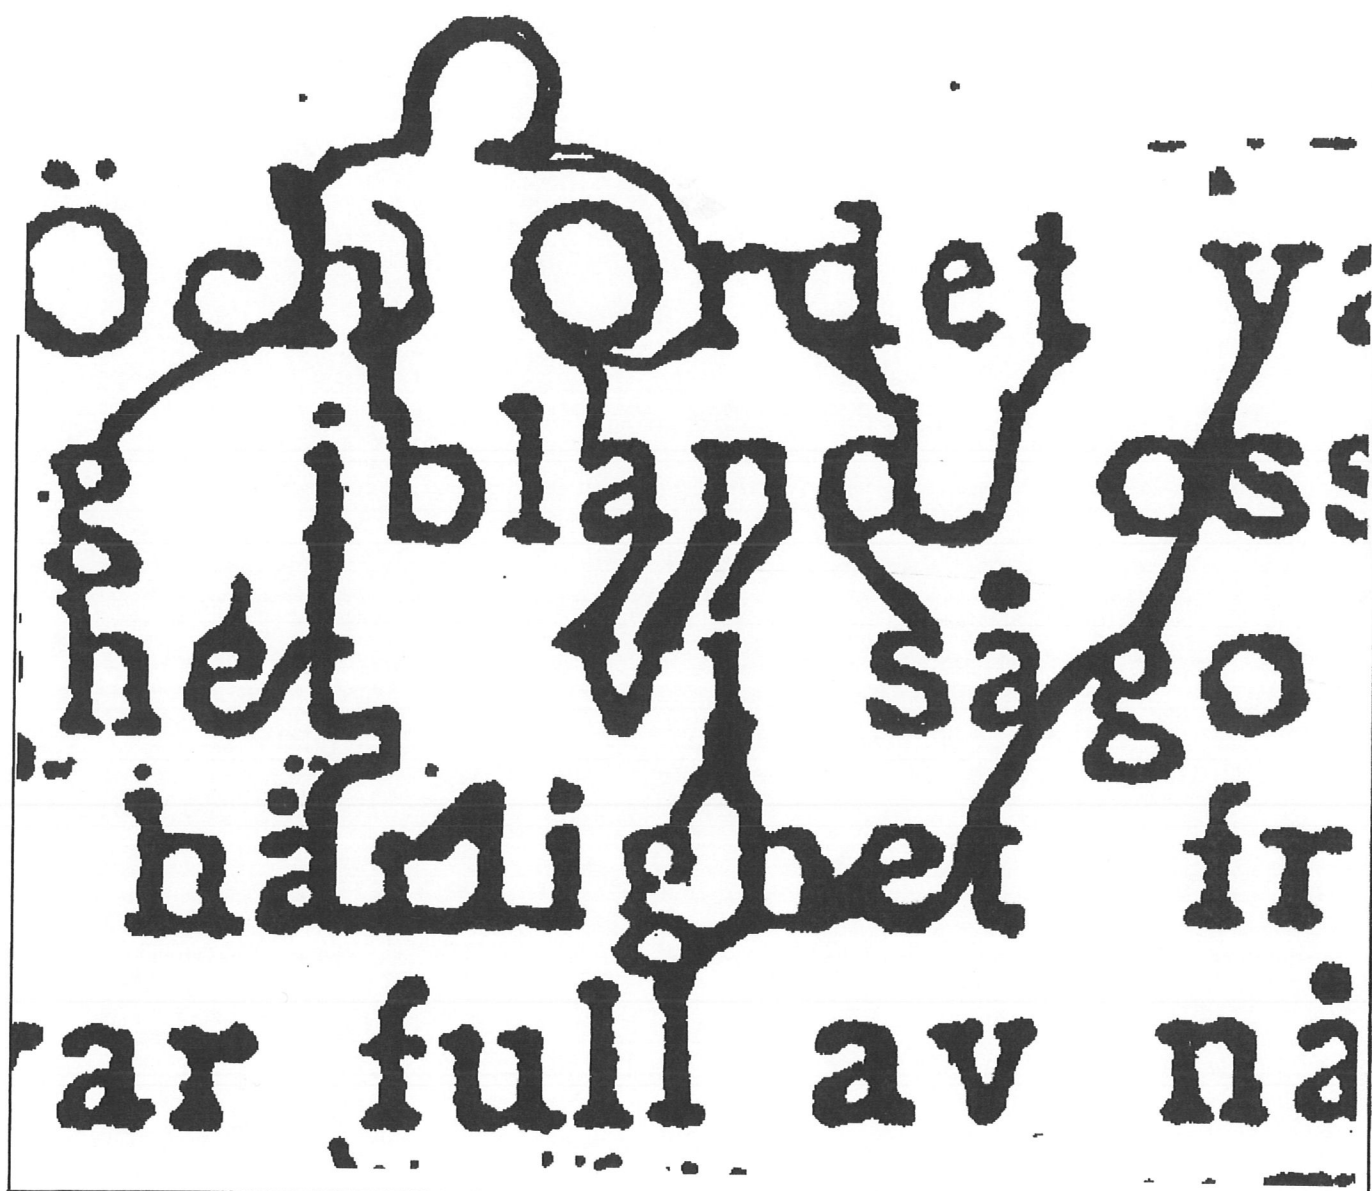 Och Ordet va
g ibland oss
het vi sågo
härlighet fr
var full av nå